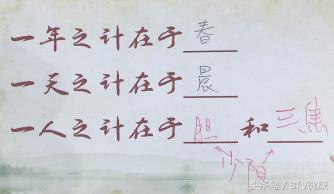 一年之计在于春
一天之计在于晨
一人之计在于胆和三焦
少阳
头条号/BTV养生